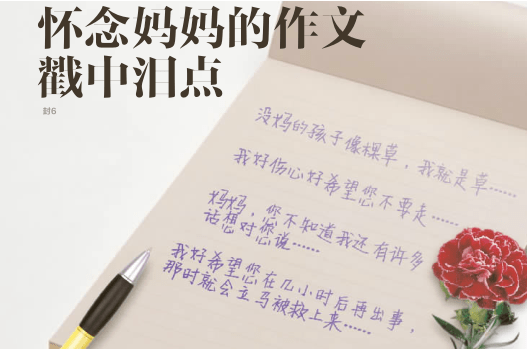 怀念妈妈的作文
戳中泪点
封6
没妈的孩子像棵草，我就是草……
我好伤心好希望您不要走……
妈妈，您不知道我还有许多
话想对您说……
我好希望您在几小时后再出事，
那时就会立马被救上来……